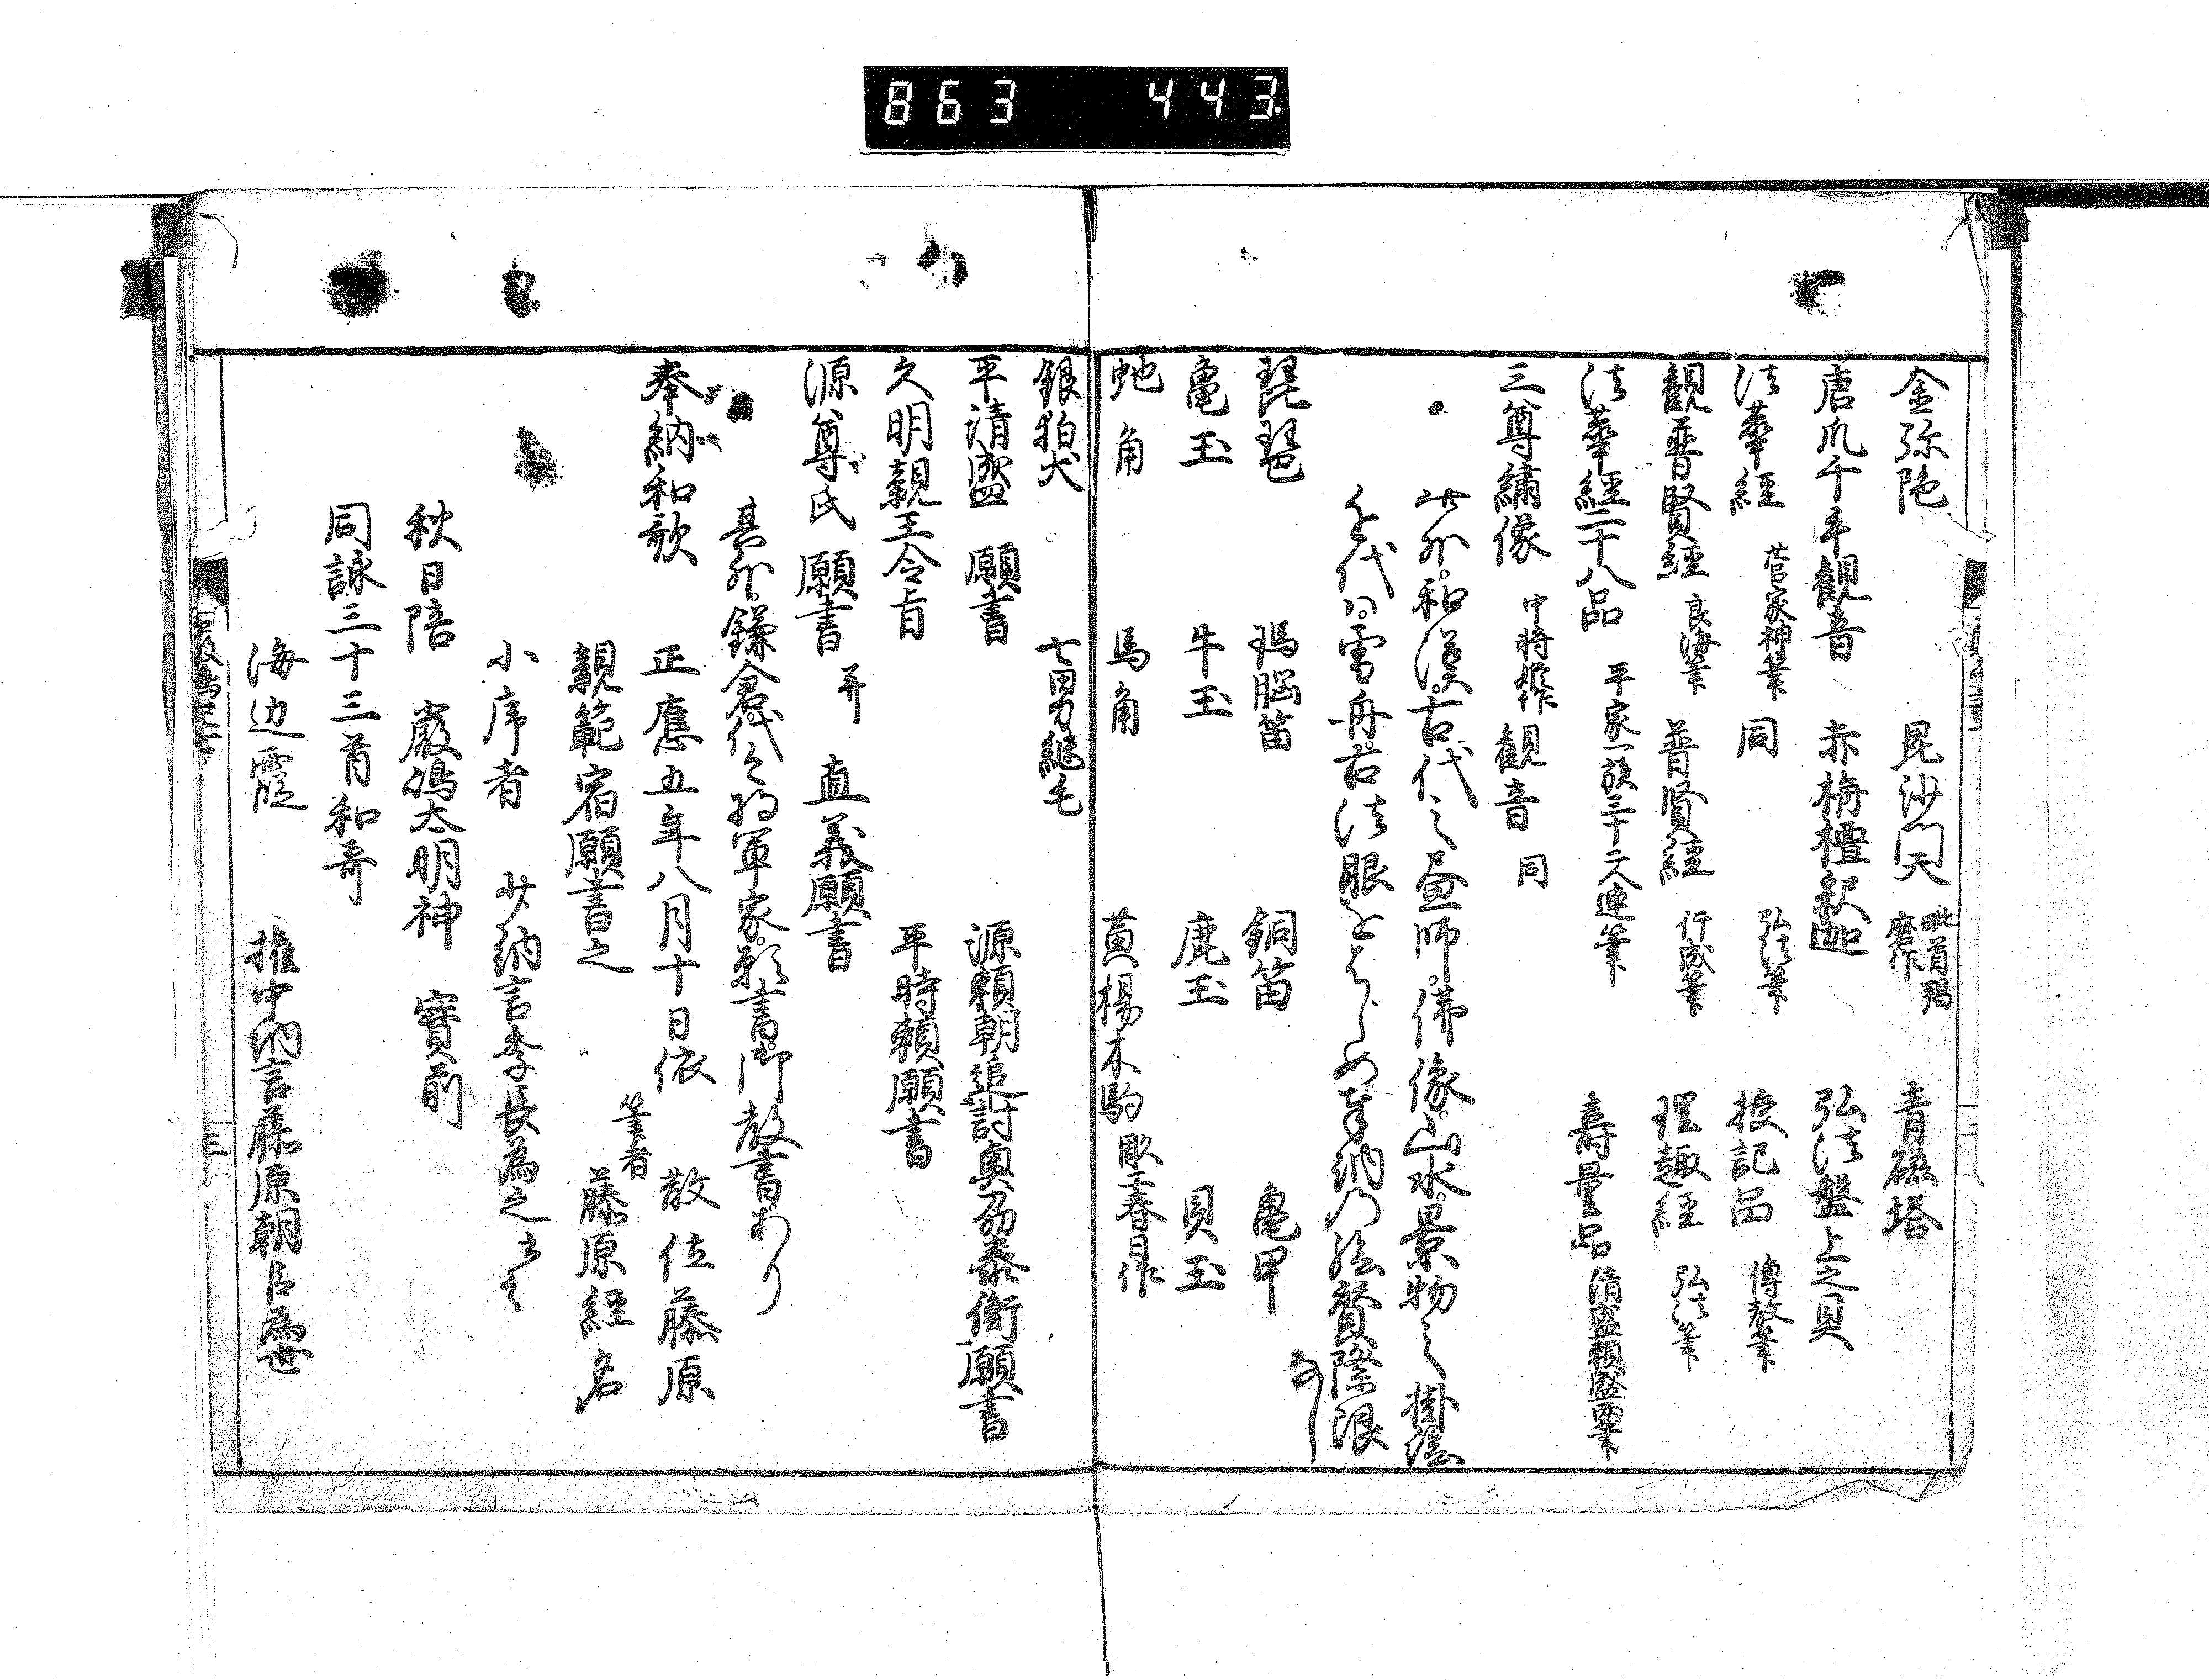 863 443
金弥陀 昆沙門天 毗首羯磨作 青磁塔
唐爪千手観音 赤栴檀釈迦 弘法盤上之貝
法華経 菅家神筆 同 弘法筆 授記品 傳教筆
観普賢経 良海筆 普賢経 行成筆 理趣経 弘法筆
法華経二十八品 平家一族三十二人連筆 壽量品 清盛頼盛両筆
三尊繍像 中将姫作 観音 同
此外和漢古代之畫師佛像山水景物之掛絵
近代ハ雪舟古法眼をはじめ奉納乃絵賛際限
なし
琵琶 瑪脳笛 銅笛 亀甲
亀玉 牛玉 鹿玉 貝玉
虵角 馬角 黄楊木駒 彫工春日作
銀狛犬 七男継毛
平清盛 願書 源頼朝追討奥州泰衡願書
久明親王令旨 平時頼願書
源尊氏願書 并 直義願書
其外鎌倉代々将軍家願書御教書あり
奉納和歌 正應五年八月十日依 散位藤原
親範宿願書之 筆者 藤原経名
小序者 少納言季長為之云々
秋日陪 厳嶋大明神 寶前
同詠三十三首和哥
海辺霞 権中納言藤原朝臣為世
三